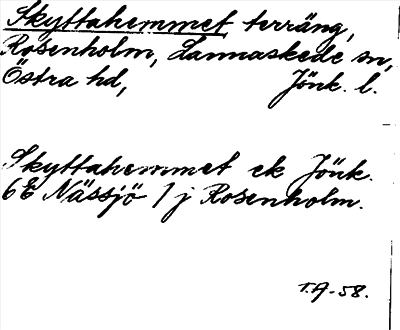 Skyttahemmet terräng,
Rosenholm, Lannaskede sn,
Östra hd, Jönk. l.
Skyttahemmet ek Jönk.
6E Nässjö 1 j Rosenholm.
T.A-58.